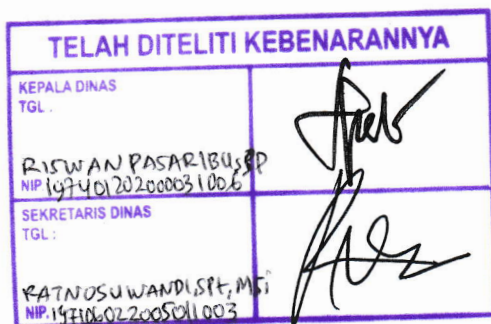 TELAH DITELITI KEBENARANNYA
KEPALA DINAS
TGL .
RISWAN PASARIBU, SP
NIP. 197401202000031006
SEKRETARIS DINAS
TGL :
RATNOSUWANDI, SPt, MSi
NIP. 197106022005011003